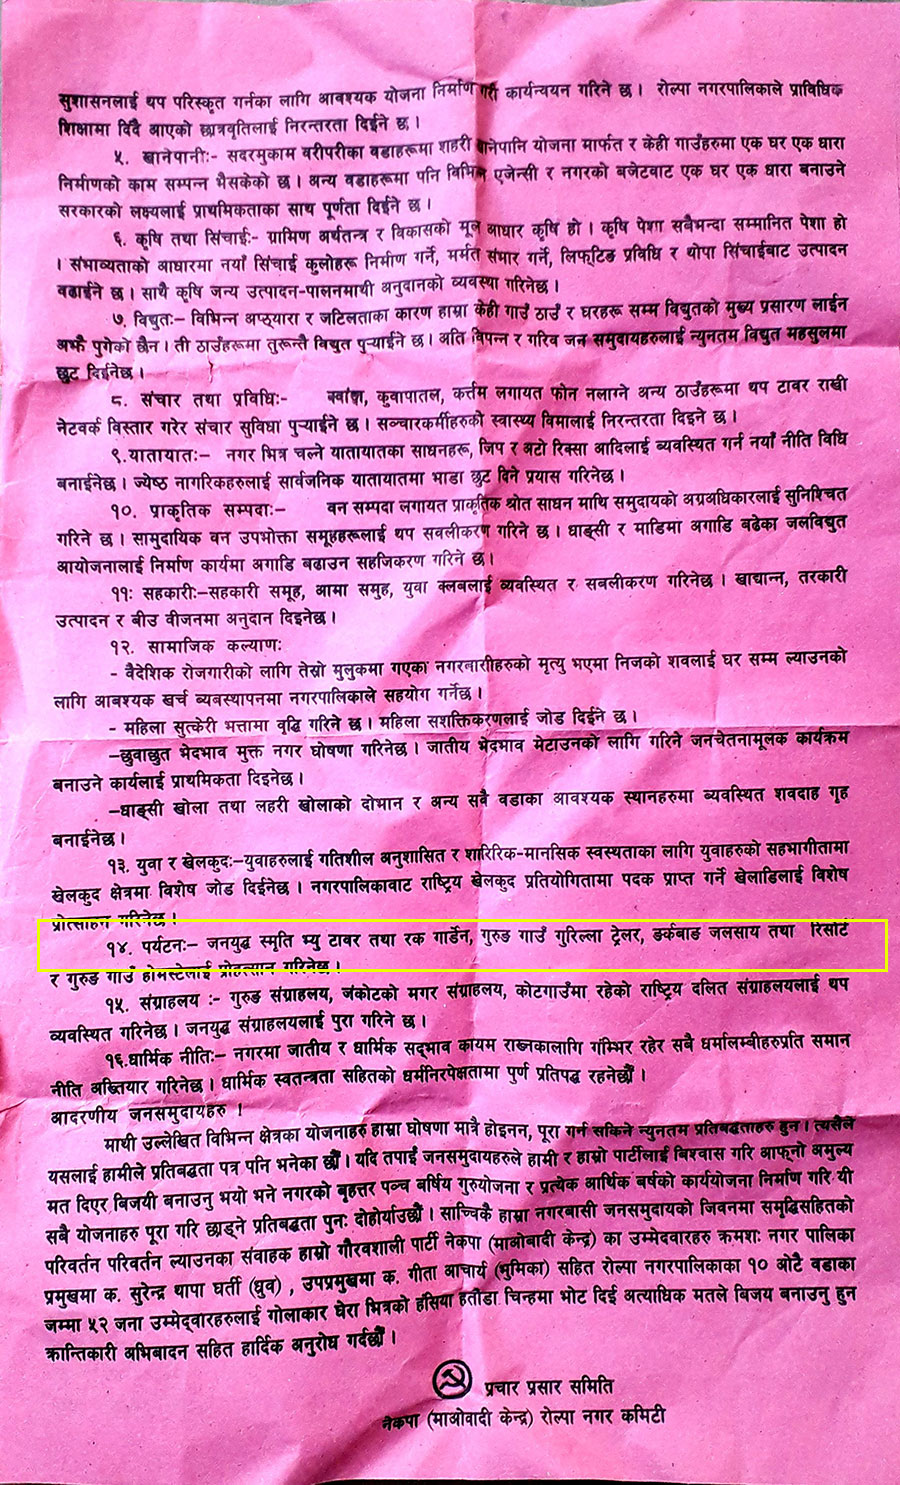 सुशासनलाई थप परिस्कृत गर्नका लागि आवश्यक योजना निर्माण गरी कार्यन्वयन गरिने छ । रोल्पा नगरपालिकाले प्राविधिक
शिक्षामा दिँदै आएको छात्रवृतिलाई निरन्तरता दिईने छ ।
५. खानेपानीः- सदरमुकाम वरीपरीका वडाहरूमा शहरी खानेपानि योजना मार्फत र केही गाउँहरुमा एक घर एक धारा
निर्माणको काम सम्पन्न भैसकेको छ । अन्य वडाहरूमा पनि विभिन्न एजेन्सी र नगरको बजेटबाट एक घर एक धारा बनाउने
सरकारको लक्ष्यलाई प्राथमिकताका साथ पूर्णता दिईने छ ।
६. कृषि तथा सिंचाईः- ग्रामिण अर्थतन्त्र र विकासको मूल आधार कृषि हो । कृषि पेशा सबैभन्दा सम्मानित पेशा हो
। संभाव्यताको आधारमा नयाँ सिंचाई कुलोहरू निर्माण गर्ने, मर्मत संभार गर्ने, लिफ्टिङ प्रविधि र थोपा सिंचाईबाट उत्पादन
बढाईने छ । साथै कृषि जन्य उत्पादन-पालनमाथी अनुदानको व्यवस्था गरिनेछ ।
७. विद्युतः- विभिन्न अप्ठ्यारा र जटिलताका कारण हाम्रा केही गाउँ ठाउँ र घरहरू सम्म विद्युतको मुख्य प्रसारण लाईन
अझै पुगेको छैन । ती ठाउँहरूमा तुरून्तै विद्युत पुऱ्याईने छ । अति विपन्न र गरिव जन समुदायहरुलाई न्युनतम विद्युत महसुलमा
छुट दिईनेछ ।
८. संचार तथा प्रविधिः- क्वांङ्घा, कुवापातल, कर्त्तम लगायत फोन नलाग्ने अन्य ठाउँहरूमा थप टावर राखी
नेटवर्क विस्तार गरेर संचार सुविधा पुऱ्याईने छ । सञ्चारकर्मीहरुको स्वास्थ्य विमालाई निरन्तरता दिइने छ ।
९.यातायातः- नगर भित्र चल्ने यातायातका साधनहरू, जिप र अटो रिक्सा आदिलाई ब्यवस्थित गर्न नयाँ नीति विधि
बनाईनेछ । ज्येष्ठ नागरिकहरुलाई सार्वजनिक यातायातमा भाडा छुट दिने प्रयास गरिनेछ ।
१०. प्राकृतिक सम्पदाः- वन सम्पदा लगायत प्राकृतिक श्रोत साधन माथि समुदायको अग्रअधिकारलाई सुनिश्चित
गरिने छ । सामुदायिक वन उपभोक्ता समूहहरूलाई थप सबलीकरण गरिने छ । धाङ्सी र माडिमा अगाडि बढेका जलविद्युत
आयोजनालाई निर्माण कार्यमा अगाडि बढाउन सहजिकरण गरिने छ ।
११ः सहकारीः-सहकारी समूह, आमा समुह, युवा क्लबलाई व्यवस्थित र सबलीकरण गरिनेछ । खाद्यान्न, तरकारी
उत्पादन र बीउ वीजनमा अनुदान दिइनेछ ।
१२. सामाजिक कल्याणः
- वैदेशिक रोजगारीको लागि तेस्रो मुलुकमा गएका नगरबासीहरुको मृत्यु भएमा निजको शवलाई घर सम्म ल्याउनको
लागि आबश्यक खर्च ब्यबस्थापनमा नगरपालिकाले सहयोग गर्नेछ ।
- महिला सुत्केरी भत्तामा वृद्धि गरिने छ । महिला सशक्तिकरणलाई जोड दिईने छ ।
-छुवाछुत भेदभाव मुक्त नगर घोषणा गरिनेछ । जातीय भेदभाव मेटाउनको लागि गरिने जनचेतनामूलक कार्यक्रम
बनाउने कार्यलाई प्राथमिकता दिइनेछ ।
-धाङ्सी खोला तथा लहरी खोलाको दोभान र अन्य सबै वडाका आवश्यक स्थानहरुमा ब्यवस्थित शवदाह गृह
बनाईनेछ ।
१३. युवा र खेलकुदः-युवाहरुलाई गतिशील अनुशासित र शारिरिक-मानसिक स्वस्थताका लागि युवाहरुको सहभागीतामा
खेलकुद क्षेत्रमा विशेष जोड दिईनेछ । नगरपालिकावाट राष्ट्रिय खेलकुद प्रतियोगितामा पदक प्राप्त गर्ने खेलाडिलाई विशेष
प्रोत्साहन गरिनेछ ।
१४. पर्यटनः- जनयुद्ध स्मृति भ्यु टावर तथा रक गार्डेन, गुरुङ गाउँ गुरिल्ला ट्रेलर, ङर्कबाङ जलसाय तथा रिसोर्ट
र गुरुङ गाउँ होमस्टेलाई प्रोहत्सान गरिनेछ ।
१५. संग्राहलय :- गुरुङ संग्राहलय, जंकोटको मगर संग्राहलय, कोटगाउँमा रहेको राष्ट्रिय दलित संग्राहलयलाई थप
ब्यवस्थित गरिनेछ । जनयुद्ध संग्राहलयलाई पुरा गरिने छ ।
१६.धार्मिक नीतिः- नगरमा जातीय र धार्मिक सद्भाव कायम राख्नकालागि गम्भिर रहेर सबै धर्मालम्बीहरुप्रति समान
नीति अख्तियार गरिनेछ । धार्मिक स्वतन्त्रता सहितको धर्मनिरपेक्षतामा पुर्ण प्रतिपद्ध रहनेछौँ ।
आदरणीय जनसमुदायहरु ।
माथी उल्लेखित विभिन्न क्षेत्रका योजनाहरु हाम्रा घोषणा मात्रै होइनन, पूरा गर्न सकिने न्युनतम प्रतिबद्धताहरु हुन । त्यसैले
यसलाई हामीले प्रतिबद्धता पत्र पनि भनेका छौँ । यदि तपाईं जनसमुदायहरुले हामी र हाम्रो पार्टीलाई बिश्वास गरि आफ्नो अमुल्य
मत दिएर बिजयी बनाउनु भयो भने नगरको बृहत्तर पञ्च बर्षिय गुरुयोजना र प्रत्येक आर्थिक बर्षको कार्ययोजना निर्माण गरि यी
सबै योजनाहरु पूरा गरि छाड्ने प्रतिबद्धता पुनः दोहोर्याउछौँ । साच्चिकै हाम्रा नगरबासी जनसमुदायको जिवनमा समृद्धिसहितको
परिवर्तन परिवर्तन ल्याउनका संवाहक हाम्रो गौरवशाली पार्टी नेकपा (माओबादी केन्द्र) का उम्मेदवारहरु क्रमशः नगर पालिका
प्रमुखमा क. सुरेन्द्र थापा घर्ती (ध्रुव) , उपप्रमुखमा क. गीता आचार्य (भुमिका) सहित रोल्पा नगरपालिकाका १० ओटै वडाका
जम्मा ५२ जना उम्मेद्वारहरुलाई गोलाकार घेरा भित्रको हँसिया हतौडा चिन्हमा भोट दिई अत्याधिक मतले बिजय बनाउनु हुन
क्रान्तिकारी अभिबादन सहित हार्दिक अनुरोध गर्दछौँ ।
प्रचार प्रसार समिति
नेकपा (माओवादी केन्द्र) रोल्पा नगर कमिटी